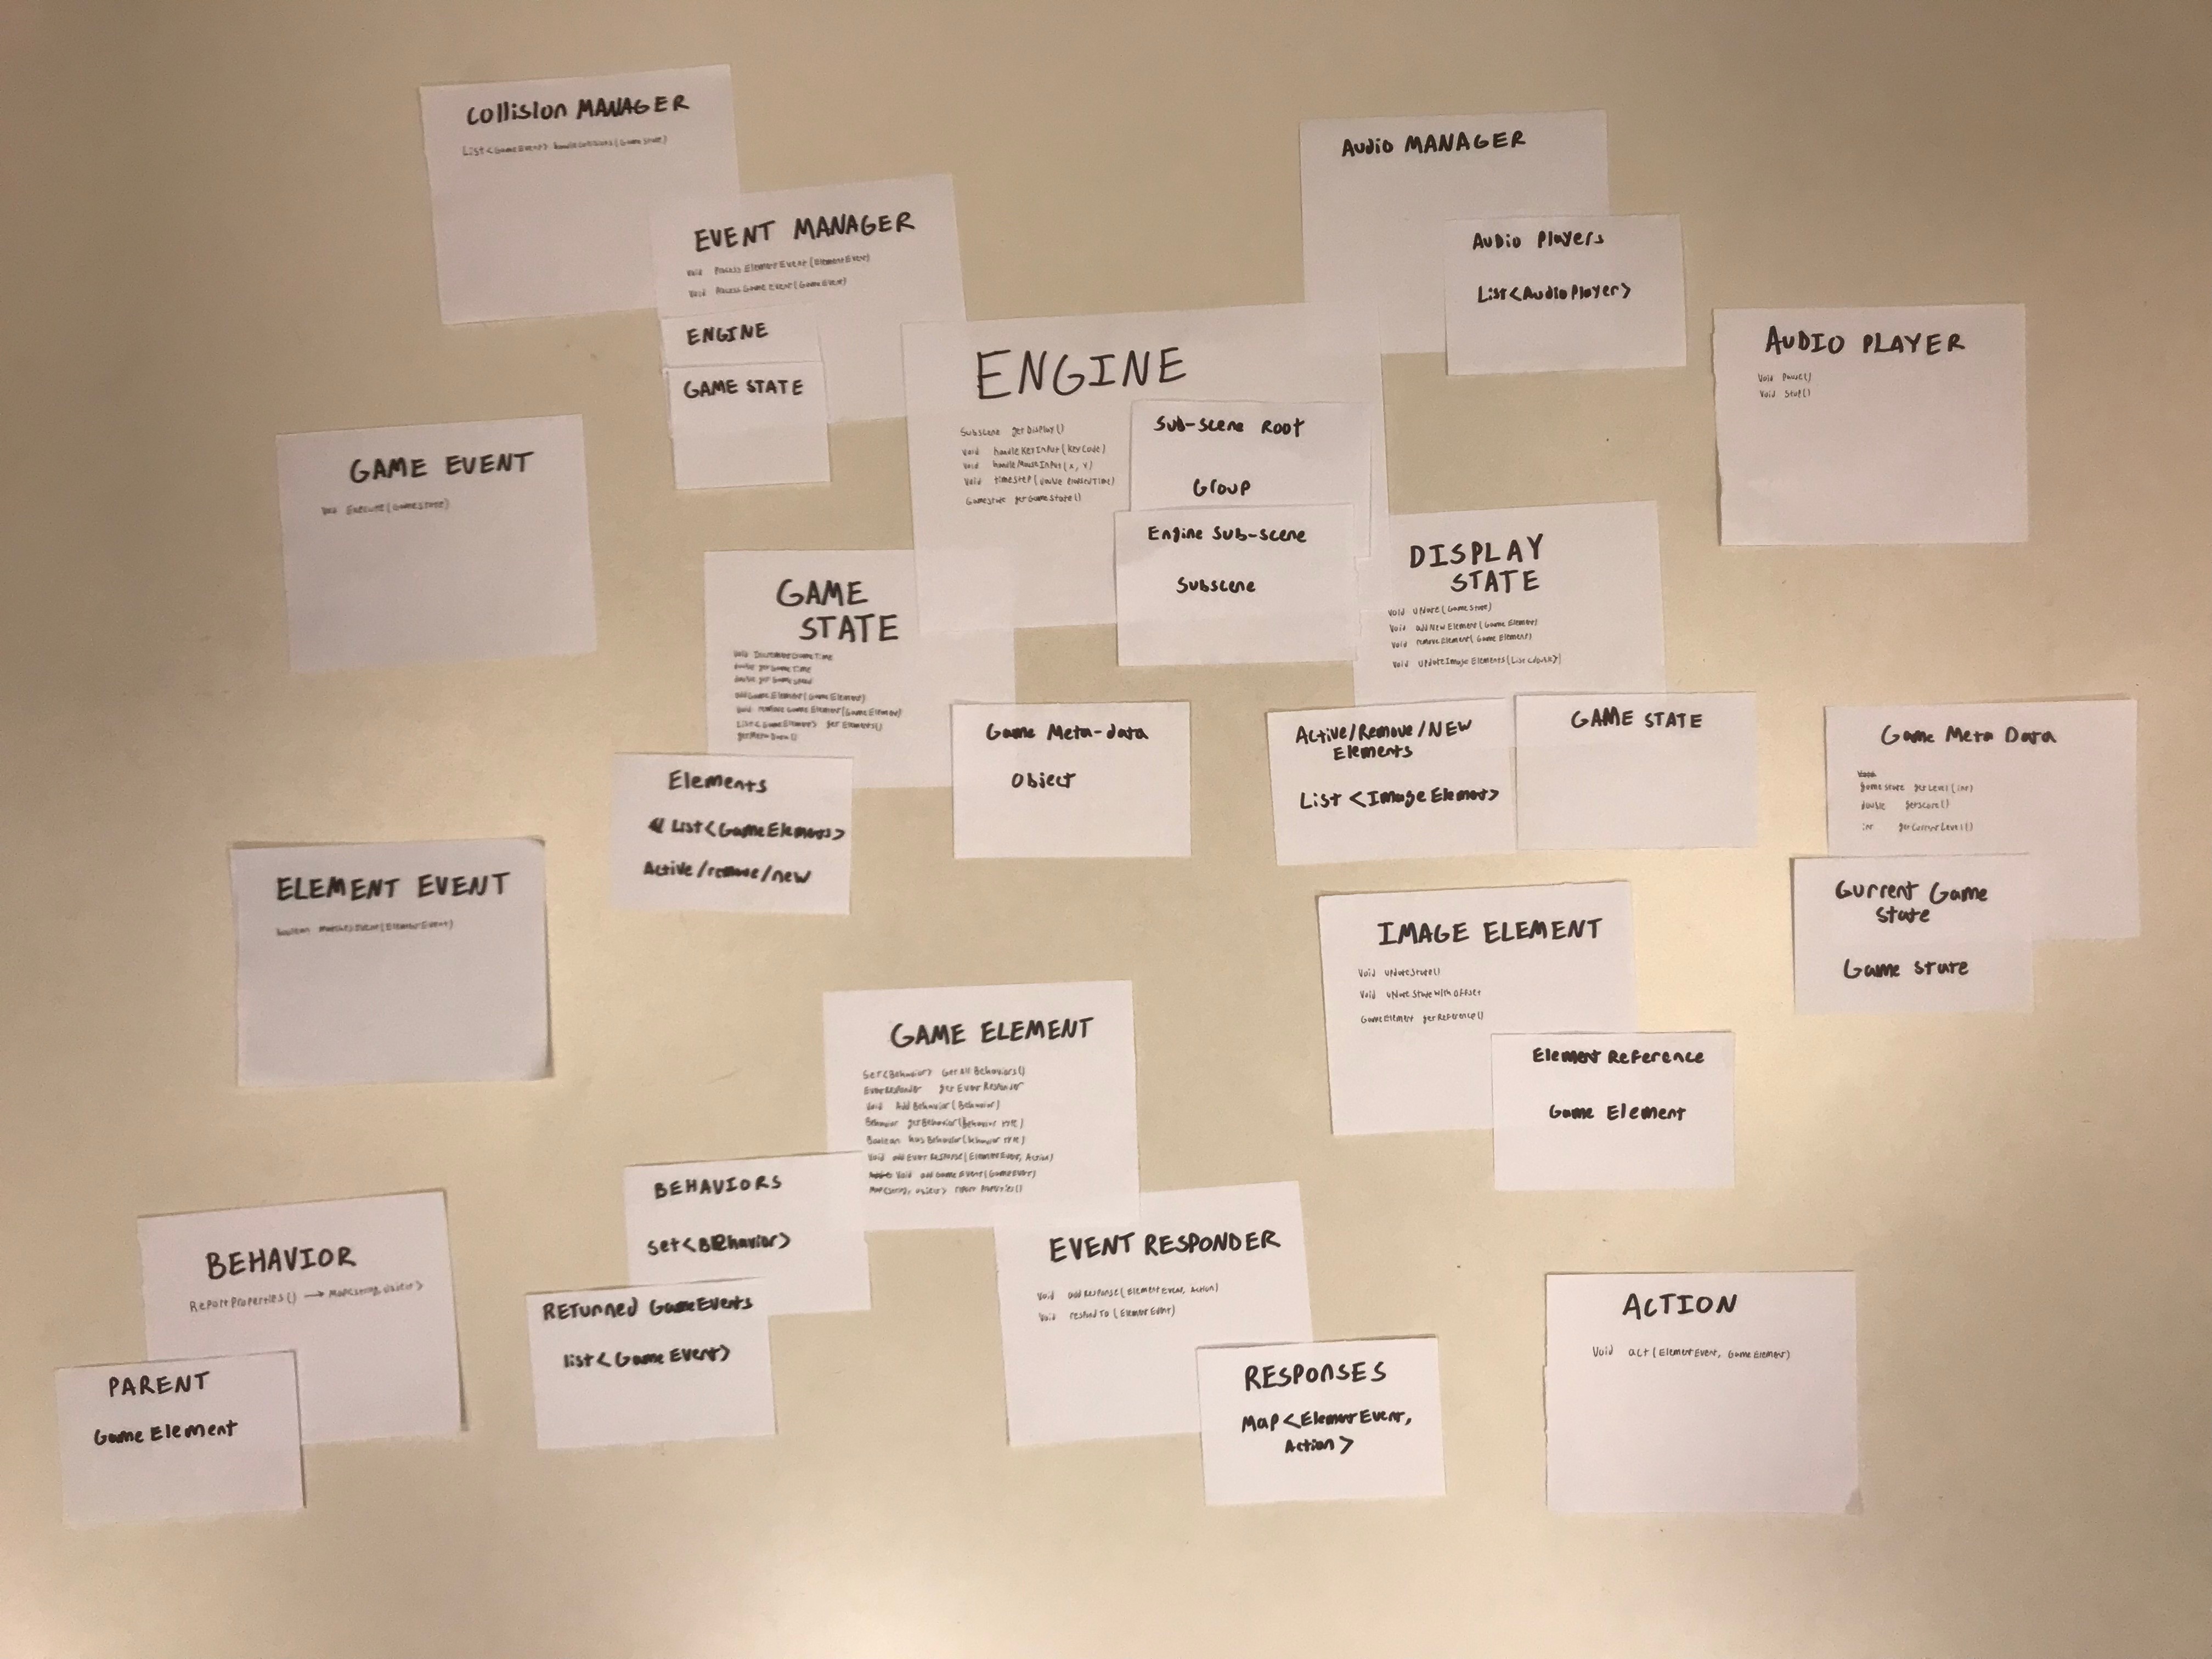 Collision MANAGER
List<GameEvent> handleCollisions(GameState)
EVENT MANAGER
Void Process ElementEvent (ElementEvent)
Void Process Game Event (GameEvent)
ENGINE
GAME STATE
Audio MANAGER
Audio Players
List<AudioPlayer>
AUDIO PLAYER
Void Pause()
Void Stop()
ENGINE
Subscene getDisplay()
Void handleKeyInput (KeyCode)
Void handleMouseInput (x, y)
Void timestep (double elapsedTime)
Gamestate getGameState()
Sub-scene Root
Group
Engine Sub-scene
Subscene
GAME EVENT
Void Execute (GameState)
GAME
STATE
Void Game Time
double getGameTime
double getGame
addGame Element (Game Element)
Void remove Game Element (Game Element)
List<GameElement> getElements()
getMetaData()
Game Meta-data
Object
Elements
List<GameElements>
Active/remove/new
DISPLAY
STATE
Void Update (GameState)
Void addNewElement (Game Element)
Void removeElement( Game Element)
Void updateImage Elements (List<double>)
Active/Remove/NEW
Elements
List <ImageElement>
GAME STATE
Game Meta Data
Void
game state getLevel (int)
double getscore()
int getCurrentLevel()
Current Game
State
Game State
ELEMENT EVENT
boolean matchesEvent (ElementEvent)
IMAGE ELEMENT
Void updateState()
Void updateState with offset
GameElement getReference()
Element Reference
Game Element
GAME ELEMENT
Set<Behavior> Get All Behaviors()
EventResponder get Event Responder
Void Add Behavior (Behavior)
Behavior getBehavior(Behavior type)
Boolean has Behavior (behavior type)
Void add Event Response (ElementEvent, Action)
Void add Game Event (GameEvent)
Map<string, object> report Properties()
BEHAVIORS
Set<BEhavior>
RETurned GameEvents
list<Game Event>
BEHAVIOR
ReportProperties() → Map<string, object>
PARENT
Game Element
EVENT RESPONDER
Void add Response (ElementEvent, Action)
Void respond To (ElementEvent)
RESPONSES
Map<ElementEvent,
Action>
ACTION
Void act (ElementEvent, GameElement)